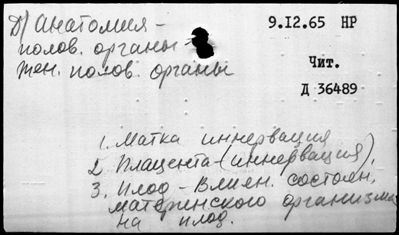 Д/ анатомия -
полов. органы -
жен. полов. органы
9.12.65 НР
Чит.
Д 36489
1. Матка иннервация
2. Плацента (иннервация).
3. Плод - Влиян. состоян.
материнского организма
на плод.